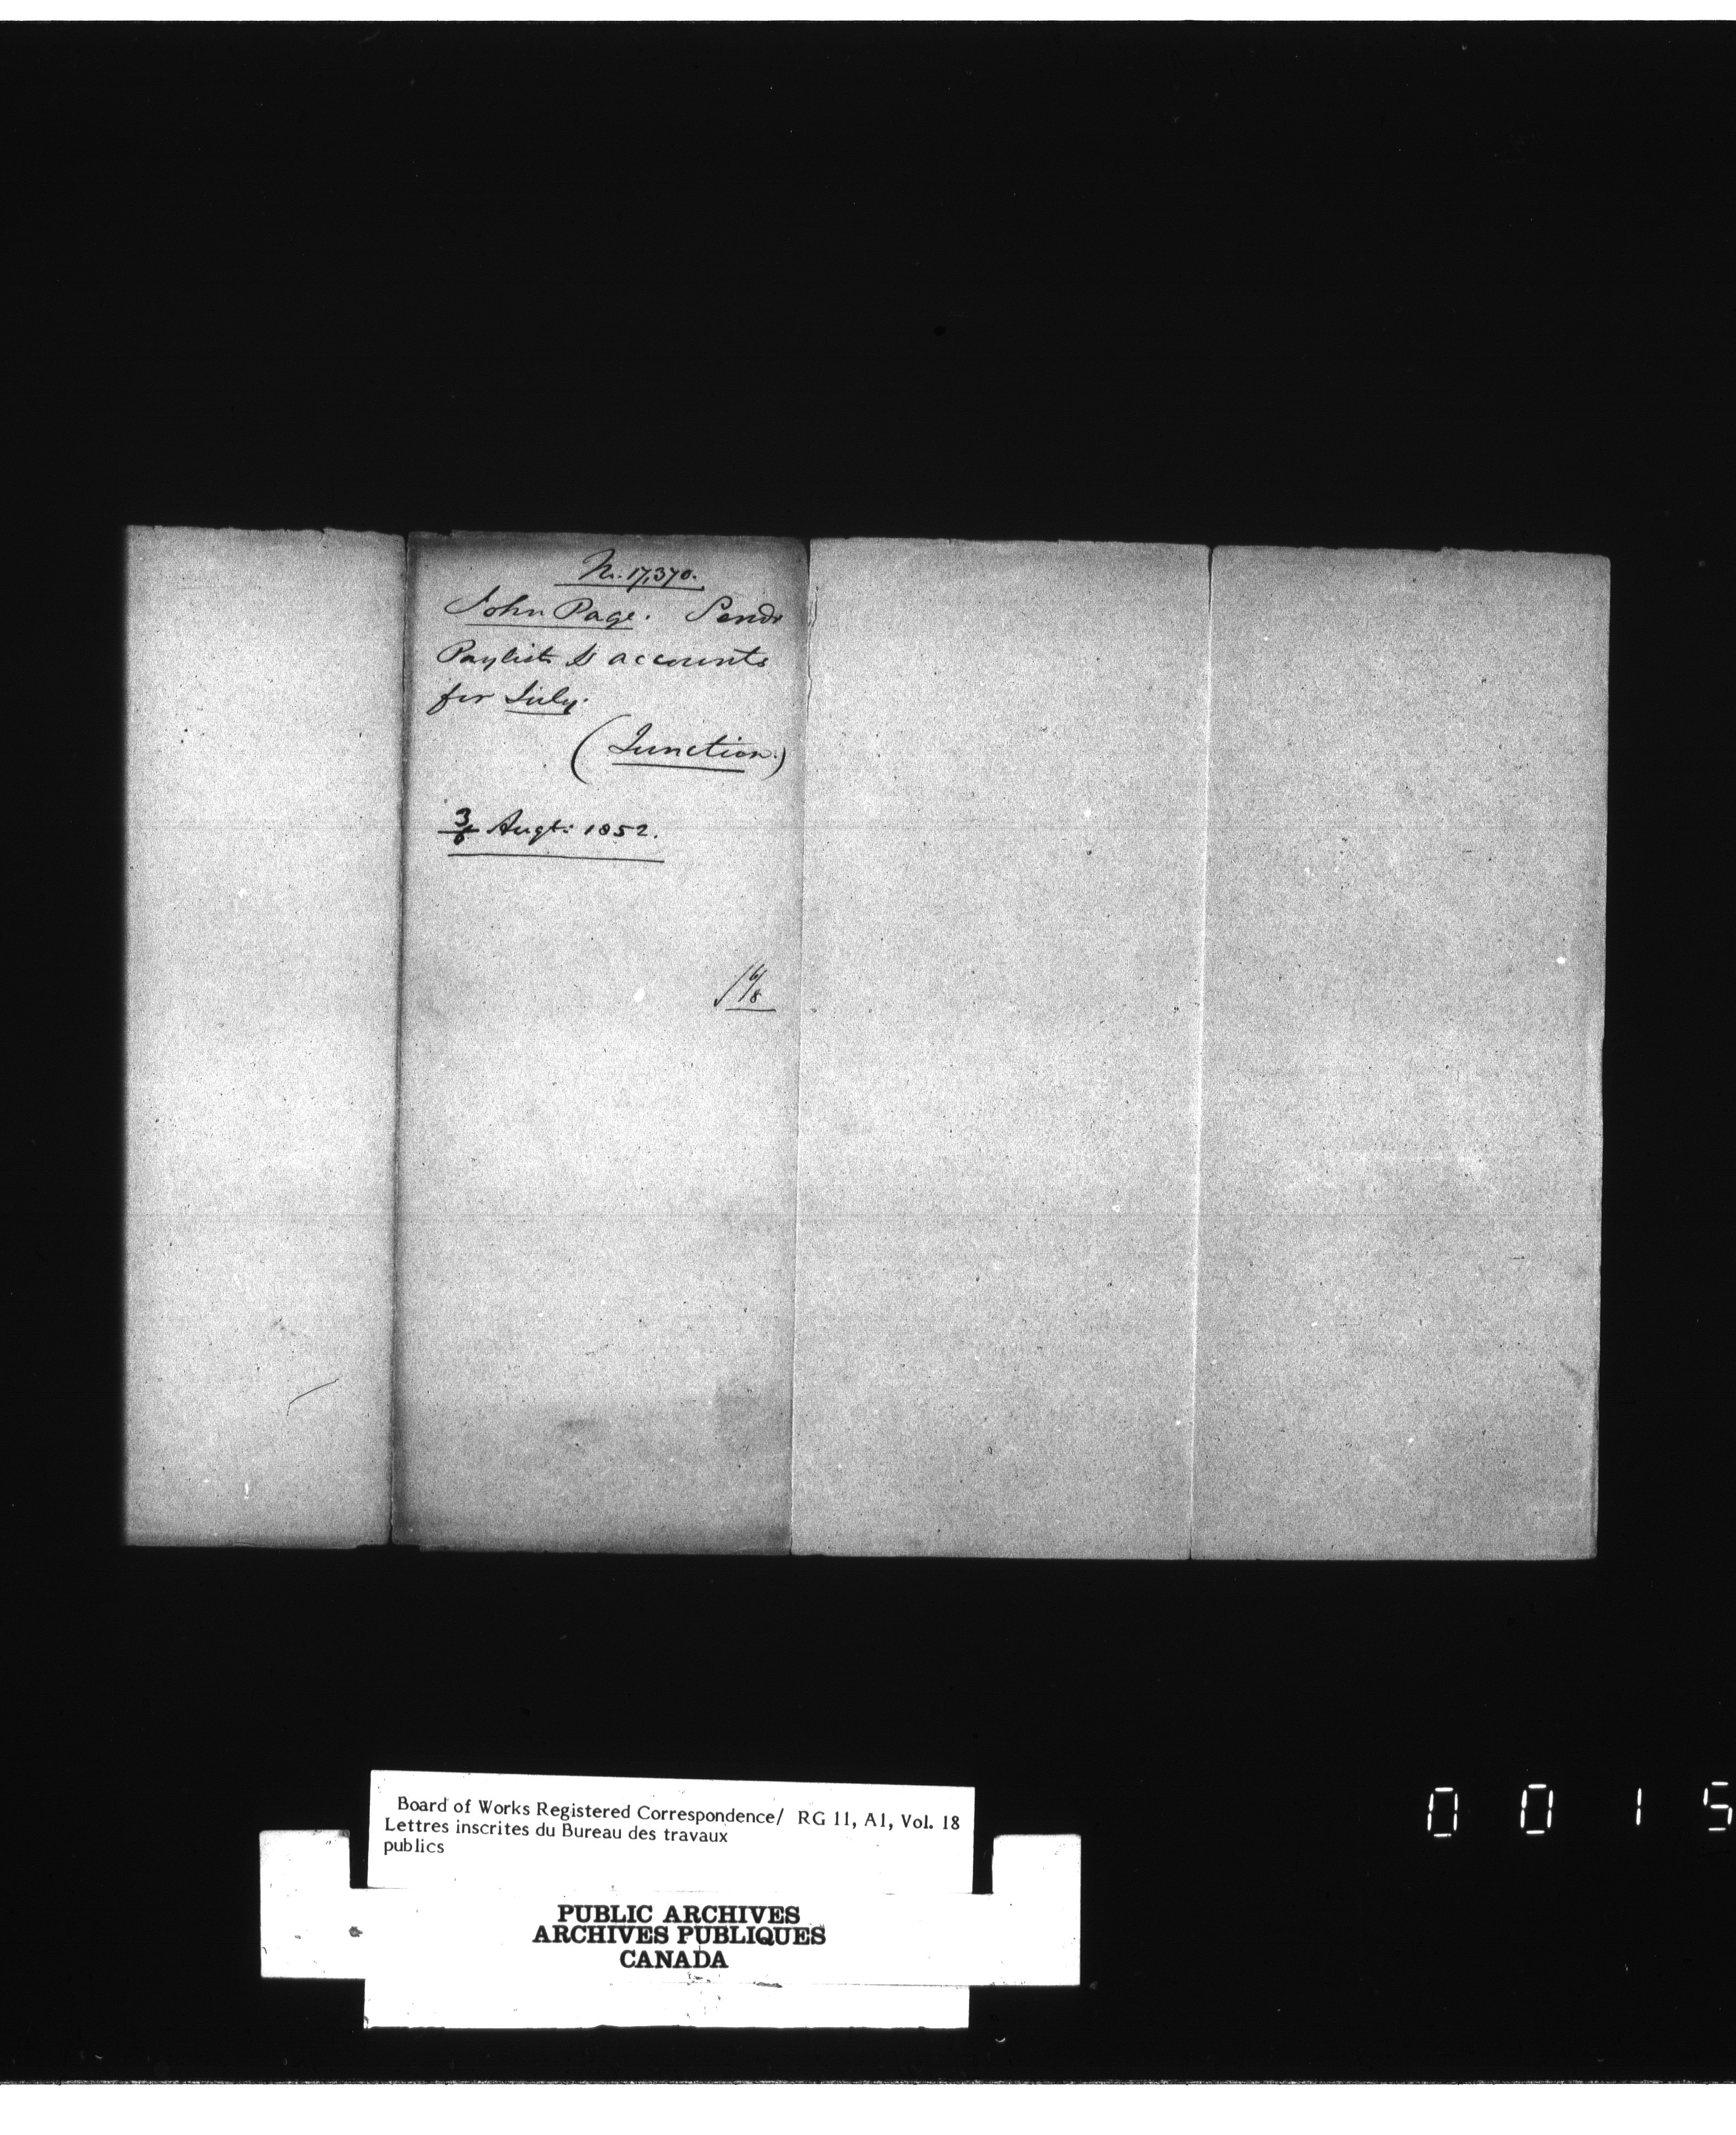 No. 17,370.
John Page. Sends
Paylists & accounts
for July.
(Junction.)
3/6 Augt: 1852.
6/8
Board of Works Registered Correspondence/ RG 11, A1, Vol. 18
Lettres inscrites du Bureau des travaux
publics
PUBLIC ARCHIVES
ARCHIVES PUBLIQUES
CANADA
0 0 1 5